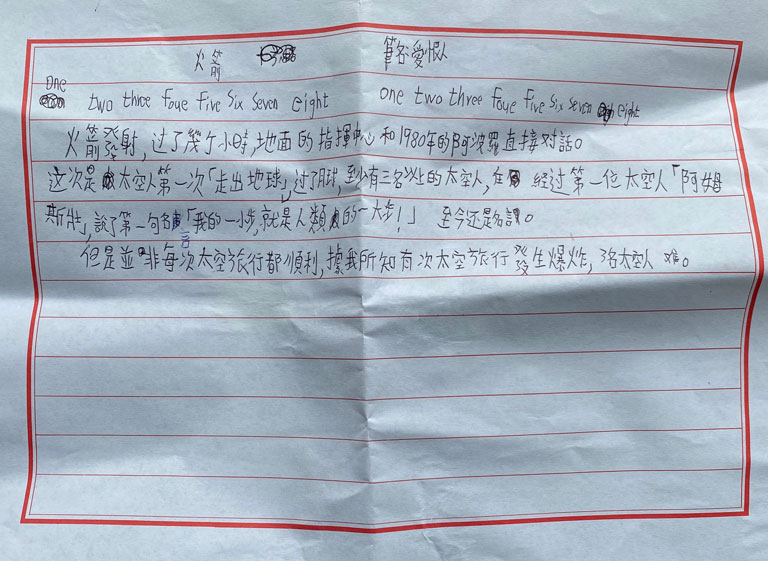 火箭 筆名愛恨人
one
two three foue five six seven eight one two three foue five six seven eight
火箭發射,过了幾个小時,地面的指揮中心和1980年的阿波羅直接对話。
这次是太空人第一次「走出地球」,过了月球,至少有三名以上的太空人,在 经过第一位太空人「阿姆
斯壯」,說了第一句名言「我的一小步,就是人類的一大步!」 至今还是名言。
但是並非每次太空旅行都順利,據我所知有次太空旅行發生爆炸,3名太空人 难。